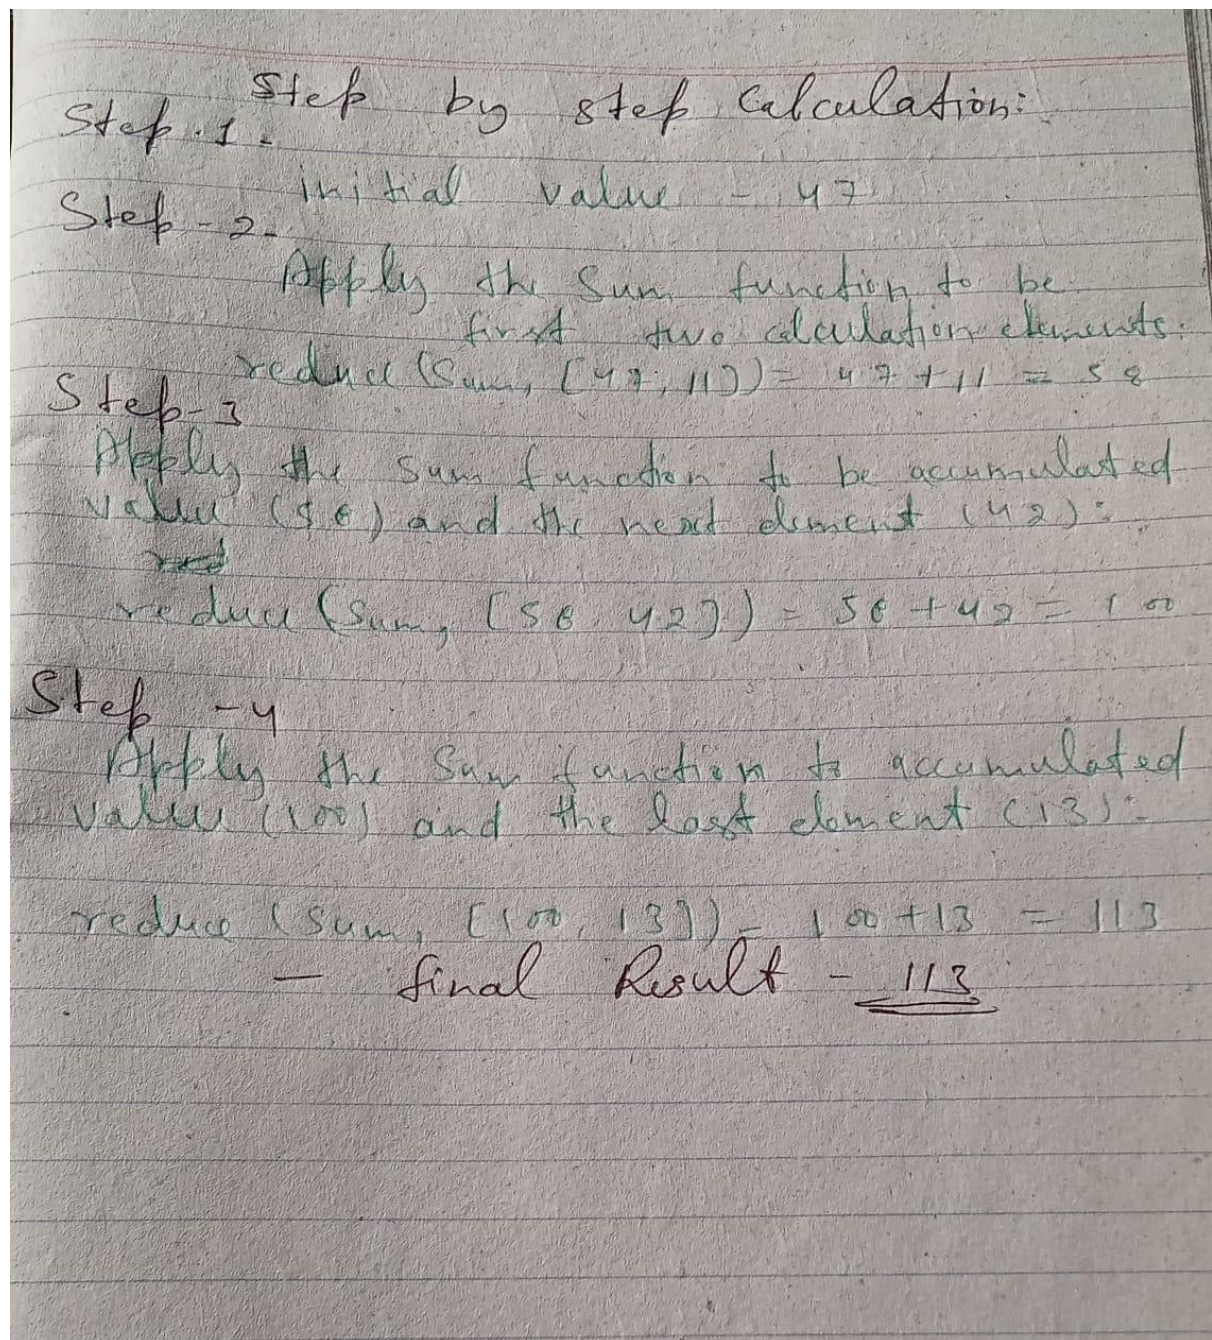 Step by step Calculation:
Step.1-
initial value - 47
Step-2-
Apply the Sum function to be
first two calculation elements.
reduce (Sum, [47, 11]) = 47 + 11 = 58
Step-3
Apply the sum function to be accumulated
value (58) and the next element (42):
reduce (Sum, [58, 42]) = 58 + 42 = 100
Step -4
Apply the Sum function to accumulated
value (100) and the last element (13):
reduce (sum, [100, 13]) - 100 + 13 = 113
- final Result - 113